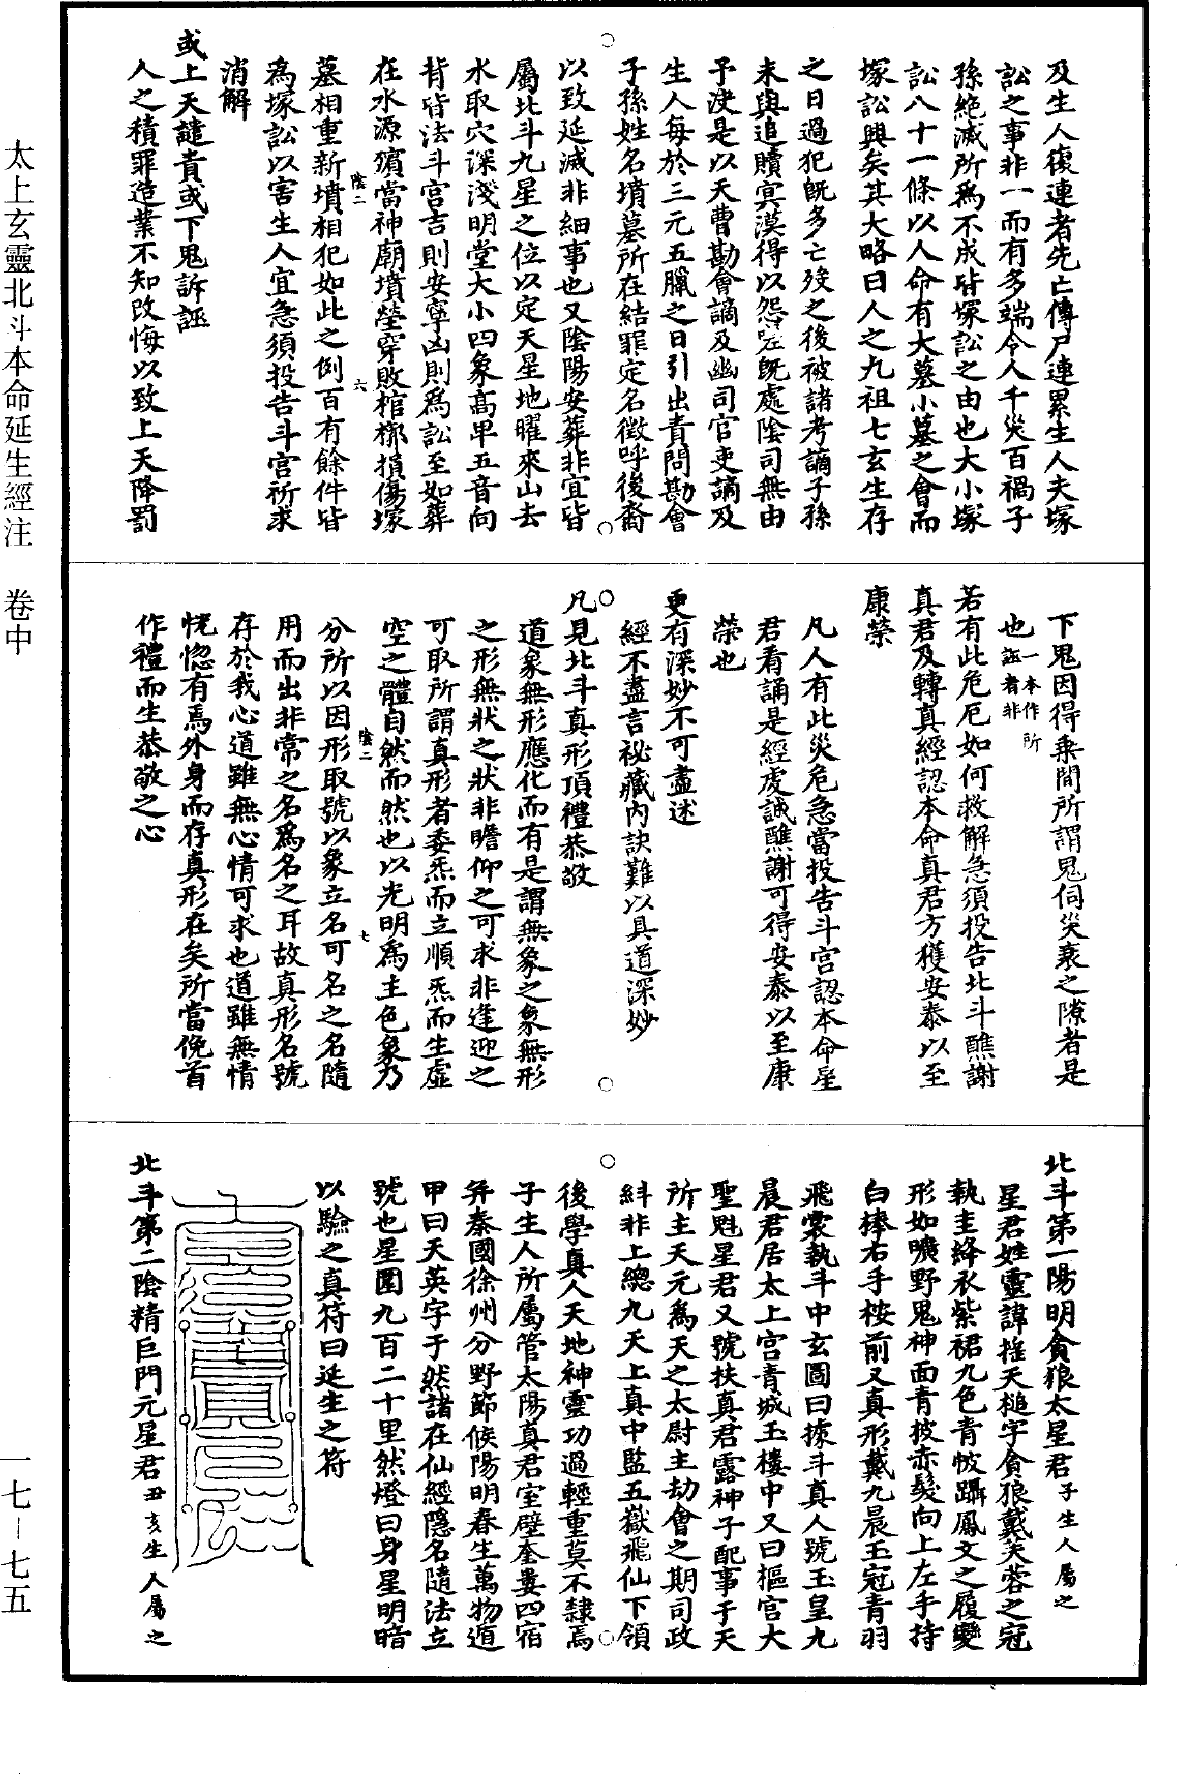 及生人復連者先亡傳尸連累生人夫塚
訟之事非一而有多端令人千災百禍子
孫絶滅所爲不成皆塚訟之由也大小塚
訟八十一條以人命有大墓小墓之會而
塚訟興矣其大略曰人之九祖七玄生存
之日過犯既多亡歿之後被諸考謫子孫
未與追贖冥漠得以怨嗟既處陰司無由
予決是以天曹勘會謫及幽司官吏謫及
生人每於三元五臘之日引出責問勘會
子孫姓名墳墓所在結罪定名徴呼後裔
以致延滅非細事也又陰陽安葬非宜皆
屬北斗九星之位以定天星地曜來山去
水取穴深淺明堂大小四象高卑五音向
背皆法斗宮吉則安寧凶則爲訟至如葬
在水源獱當神廟墳塋穿敗棺槨損傷塚
陰二 六
墓相重新墳相犯如此之例百有餘件皆
為塚訟以害生人宜急須投告斗宮祈求
消解
或上天譴責或下鬼訴誣
人之積罪造業不知改悔以致上天降罰
下鬼因得乗間所謂鬼伺災衰之隙者是
也一本作所誣者非
若有此危厄如何救解急須投告北斗醮謝
真君及轉真經認本命真君方獲安泰以至
康榮
凡人有此災危急當投告斗宮認本命星
君看誦是經虔誠醮謝可得安泰以至康
榮也
更有深妙不可盡述
經不盡言祕藏内訣難以具道深妙
凡見北斗真形頂禮恭敬
道象無形應化而有是謂無象之象無形
之形無狀之狀非瞻仰之可求非逢迎之
可取所謂真形者委炁而立順炁而生虛
空之體自然而然也以光明爲主色象乃
陰二 七
分所以因形取號以象立名可名之名隨
用而出非常之名爲名之耳故真形名號
存於我心道雖無心情可求也道雖無情
恍惚有焉外身而存真形在矣所當俛首
作禮而生恭敬之心
北斗第一陽明貪狼太星君子生人屬之
星君姓靈諱搖天槌字貪狼戴芙蓉之冠
執圭絳衣紫裙九色青帔躡鳳文之履變
形如曠野鬼神面青披赤髮向上左手持
白棒右手桉前又真形戴九晨玉冠青羽
飛裳執斗中玄圖曰據斗真人號玉皇九
晨君居太上宮青城玉樓中又曰樞宮大
聖魁星君又號扶真君露神子配事于天
所主天元為天之太尉主劫會之期司政
糾非上總九天上真中監五嶽飛仙下領
後學真人天地神靈功過輕重莫不隸焉
子生人所屬管太陽真君室壁奎婁四宿
并秦國徐州分野節候陽明春生萬物遁
甲曰天英字于然諸在仙經隱名隨法立
號也星圍九百二十里然燈曰身星明暗
以驗之真符曰延生之符
北斗第二陰精巨門元星君丑亥生人屬之
太上玄靈北斗本命延生經注 卷中
一七—七五